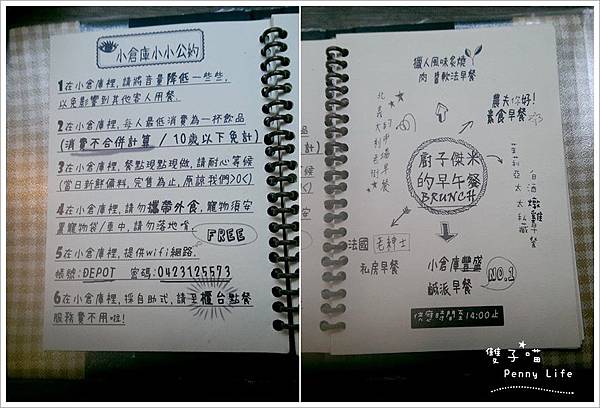 小倉庫小小公約
1在小倉庫裡,請將音量降低一些些,
以免影響到其他客人用餐.
2在小倉庫裡,每人最低消費為一杯飲品
(消費不合併計算/10歲以下免計)
3在小倉庫裡,餐點現點現做,請耐心等候
(當日新鮮備料,定售為止,原諒我們>0<)
4在小倉庫裡,請勿攜帶外食,寵物須安
置寵物袋/車中,請勿落地喔.
FREE
5在小倉庫裡,提供wifi網路.
帳號:DEPOT 密碼:0423125573
6在小倉庫裡,採自助式,請至櫃台點餐
服務費不用啦!
獵人風味炙燒
肉醬軟法早餐
農夫你好!
素食早餐
北義大利老街
的市場早餐
廚子傑米
的早午餐
BRUNCH
茱莉亞太太私藏
白酒燉雞早餐
法國老紳士
私房早餐
小倉庫豐盛
鹹派早餐
NO.1
供應時間至14:00止
雙子喵
Penny Life